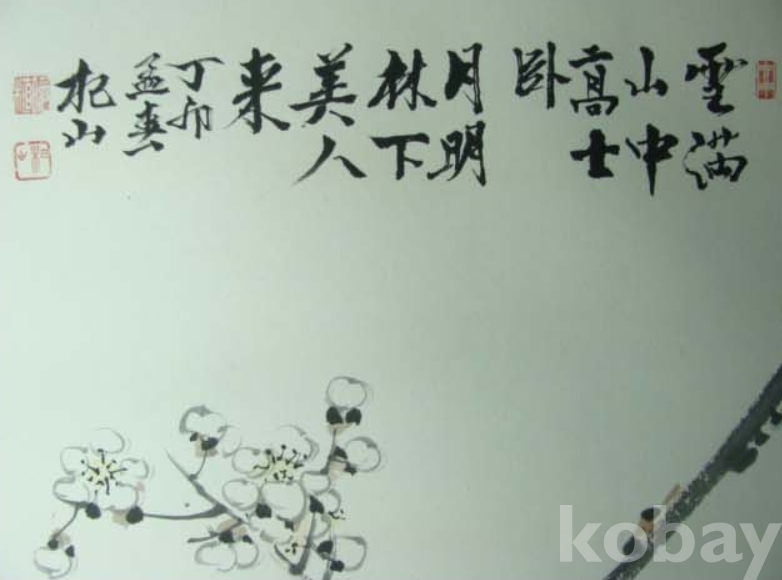 雪滿
山中
高士
卧
月明
林下
美人
来
丁卯
孟春
杞山
kobay